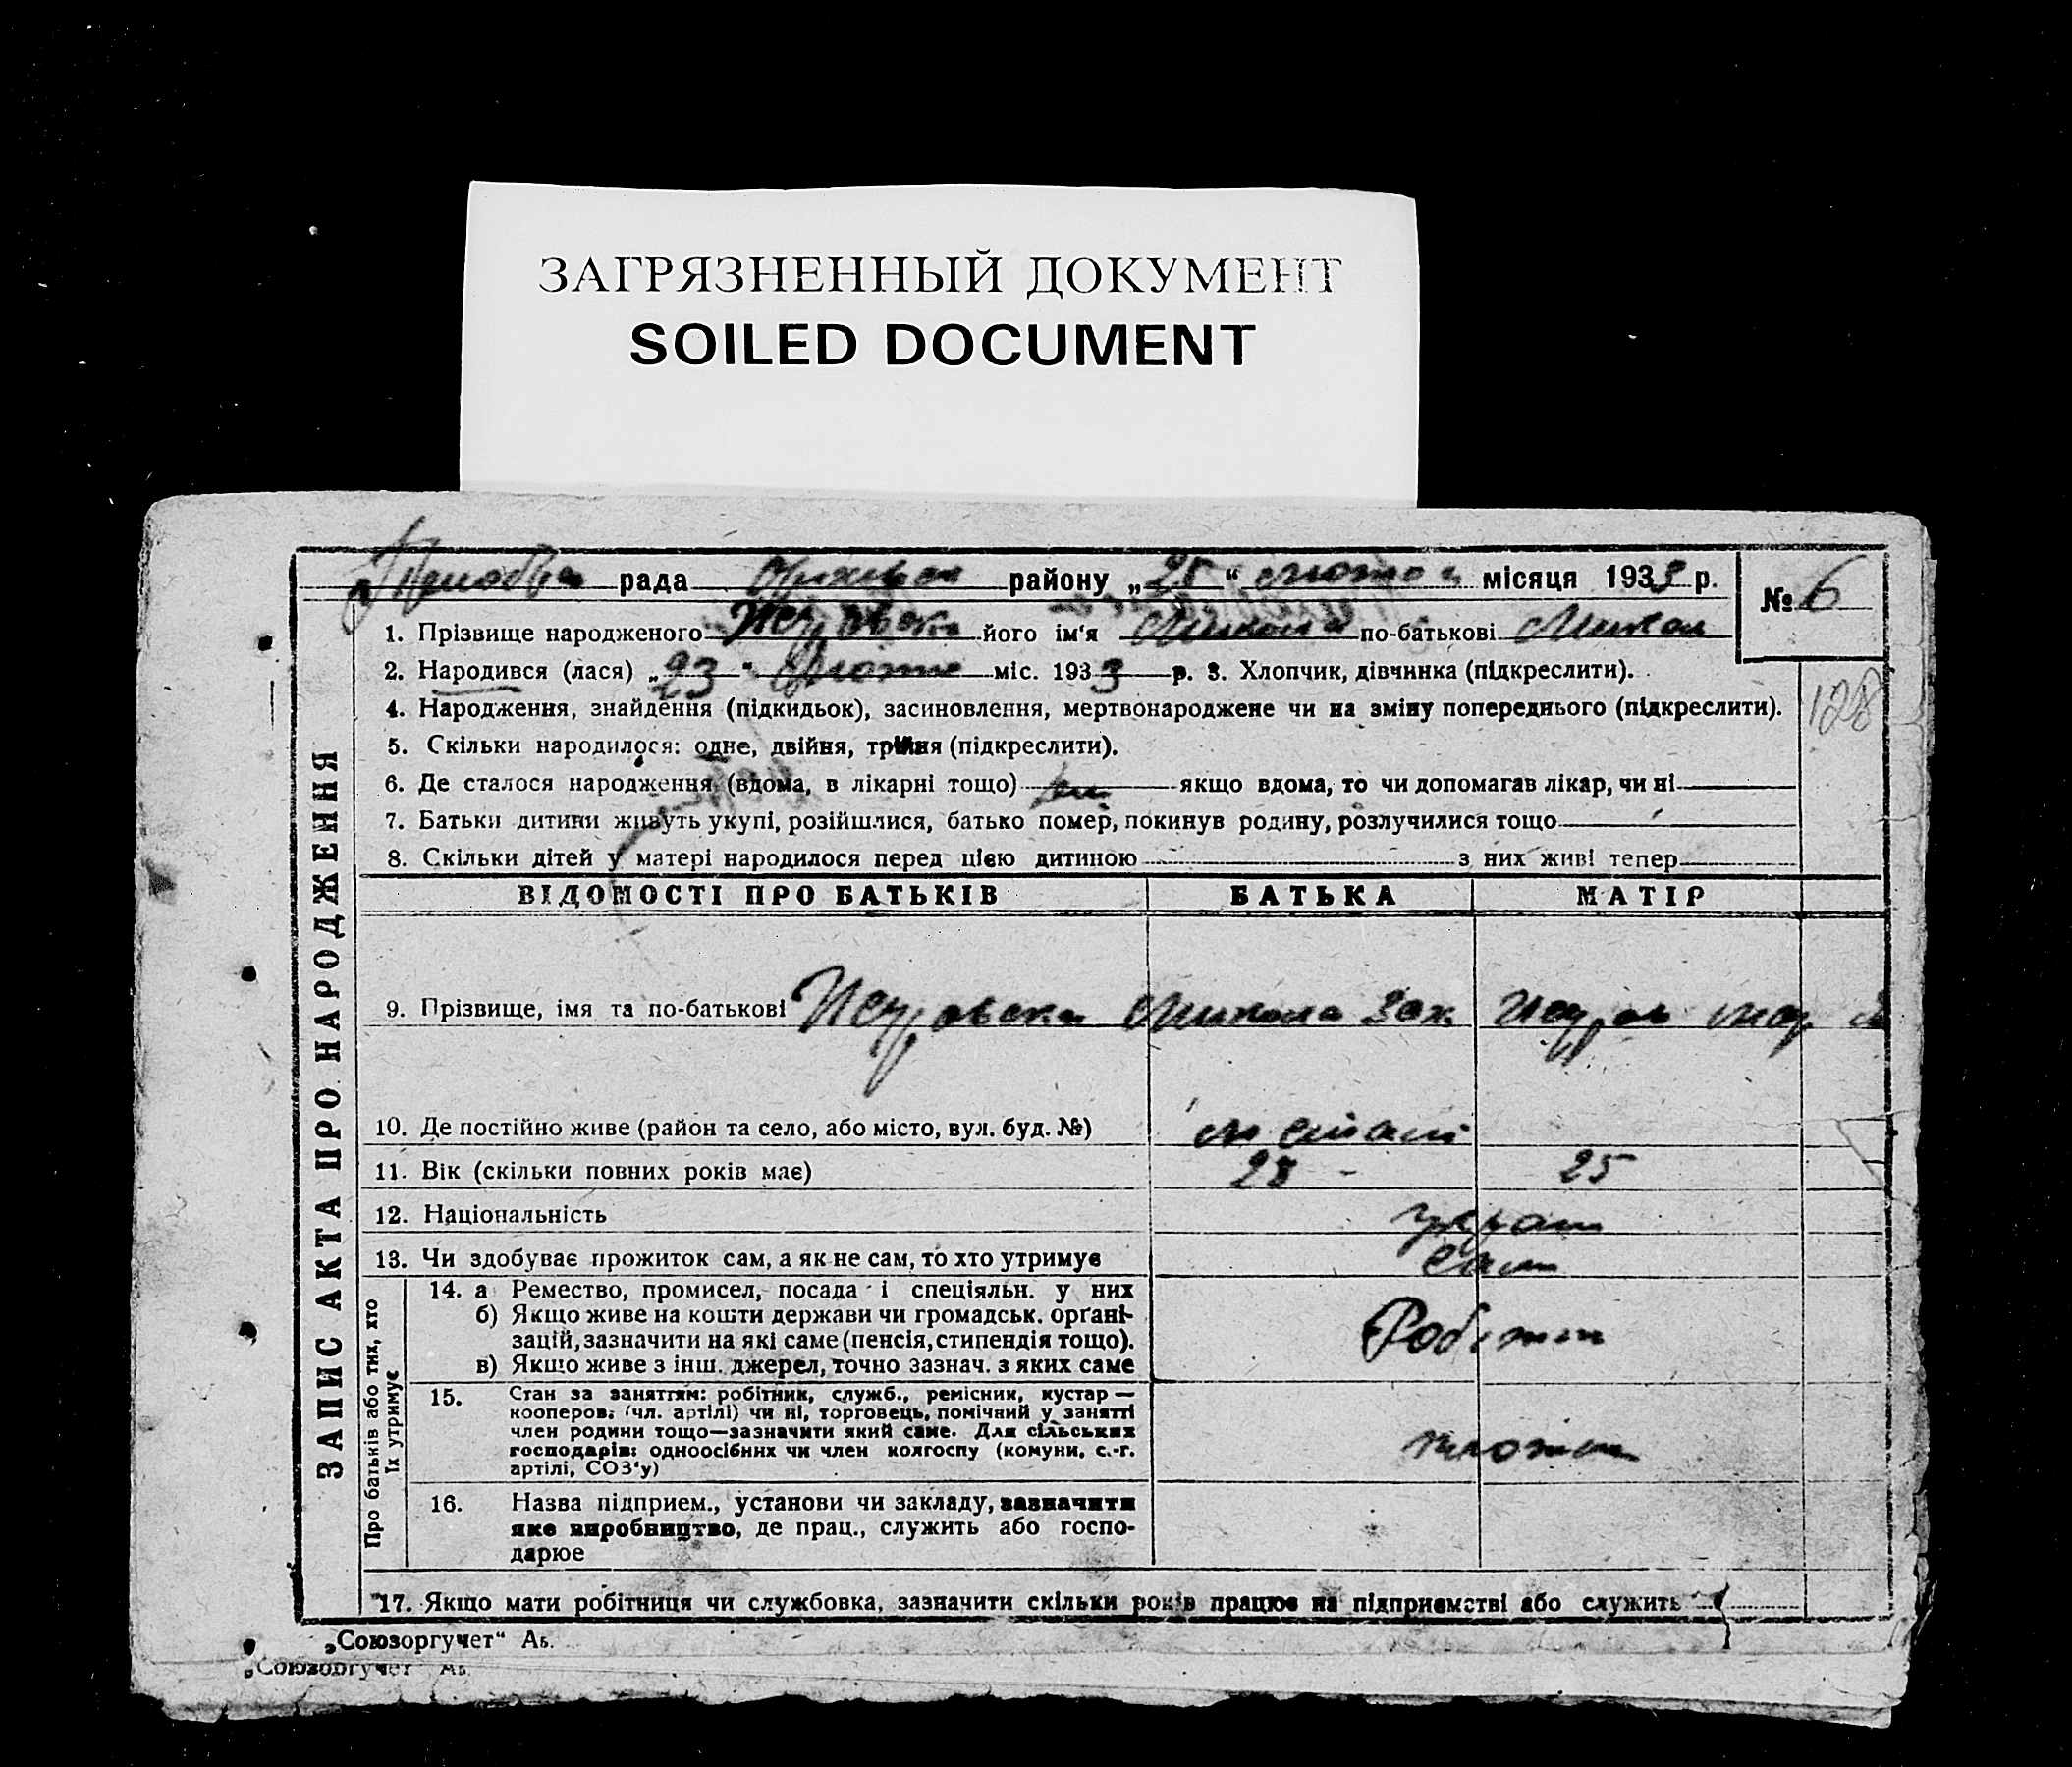 ЗАГРЯЗНЕННЫЙ ДОКУМЕНТ
SOILED DOCUMENT
рада району „25“ лютого місяця 1933 р.
№ 6
1. Прізвище народженого його ім'я Микола по-батькові Микол
2. Народився (лася) „23“ Лютого міс. 1933 р. 3. Хлопчик, дівчинка (підкреслити).
128
4. Народження, знайдення (підкидьок), засиновлення, мертвонароджене чи на зміну попереднього (підкреслити).
5. Скільки народилося: одне, двійня, трійня (підкреслити).
6. Де сталося народження (вдома, в лікарні тощо) якщо вдома, то чи допомагав лікар, чи ні
7. Батьки дитини живуть укупі, розійшлися, батько помер, покинув родину, розлучилися тощо
8. Скільки дітей у матері народилося перед цією дитиною з них живі тепер
ВІДОМОСТІ ПРО БАТЬКІВ БАТЬКА МАТІР
9. Прізвище, імя та по-батькові Микола Зах
10. Де постійно живе (район та село, або місто, вул. буд. №)
11. Вік (скільки повних років має) 28 25
12. Національність украін
13. Чи здобуває прожиток сам, а як не сам, то хто утримує сам
14. а Ремество, промисел, посада і спеціяльн. у них
б) Якщо живе на кошти держави чи громадськ. орґані-
зацій, зазначити на які саме (пенсія, стипендія тощо).
в) Якщо живе з інш. джерел, точно зазнач. з яких саме
Робітн
15. Стан за заняттям: робітник, служб., ремісник, кустар —
кооперов. (чл. артілі) чи ні, торговець, помічний у занятті
член родини тощо—зазначити який саме. Для сільських
господарів: одноосібних чи член колгоспу (комуни, с.-г.
артілі, СОЗ'у)
16. Назва підприєм., установи чи закладу, зазначити
яке виробництво, де прац., служить або госпо-
дарює
17. Якщо мати робітниця чи службовка, зазначити скільки років працює на підприємстві або служить
ЗАПИС АКТА ПРО НАРОДЖЕННЯ
Про батьків або тих, хто
їх утримує
„Союзоргучет“ Ав.
„Союзоргучет“ Ав.